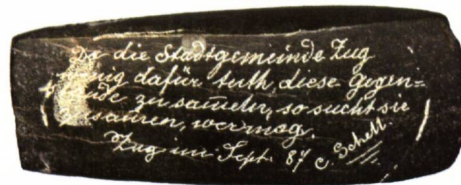 Da die Stadtgemeinde Zug
dafür tuth, diese Gegen=
zu sameln, so sucht sie
wer mag.
Zug im Sept. 87 C. Schell.